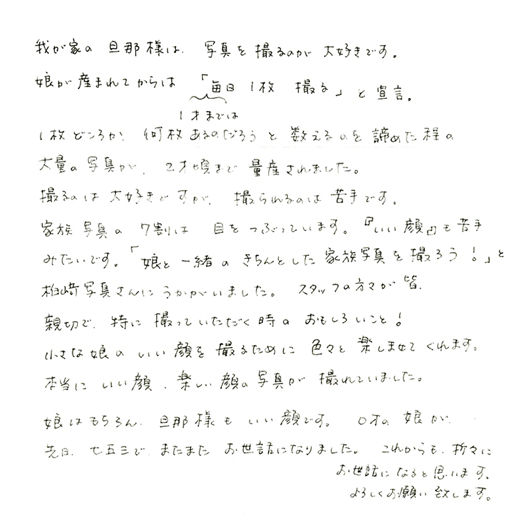 我が家の 旦那様は、写真を 撮るのが 大好きです。
娘が 産まれてからは 「毎日 1枚 撮る」と 宣言。
1才までは
1枚どころか、何枚あるのだろうと 数えるのを 諦めた程の
大量の写真が、2才頃まで 量産されました。
撮るのは 大好きですが、撮られるのは 苦手です。
家族写真の 7割は 目をつぶっています。『いい顔』も苦手
みたいです。「娘と一緒の きちんとした 家族写真を 撮ろう！」と
柏崎写真さんに うかがいました。 スタッフの方々が 皆、
親切で、特に 撮っていただく時の おもしろいこと！
小さな娘の いい顔を 撮るために 色々と 楽しませてくれます。
本当に いい顔、楽しい顔の写真が 撮れていました。
娘はもちろん、旦那様も いい顔です。 0才の 娘が、
先日、七五三で、またまた お世話になりました。 これからも、折々に
お世話に なると思います。
よろしくお願い 致します。